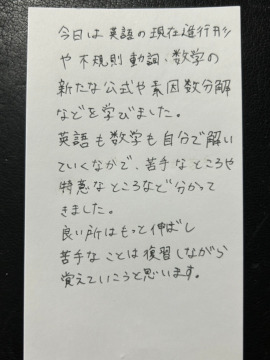 今日は英語の現在進行形
や不規則動詞、数学の
新たな公式や素因数分解
などを学びました。
英語も数学も自分で解い
ていくなかで、苦手なところや
得意なところなど分かって
きました。
良い所はもっと伸ばし
苦手なことは復習しながら
覚えていこうと思います。